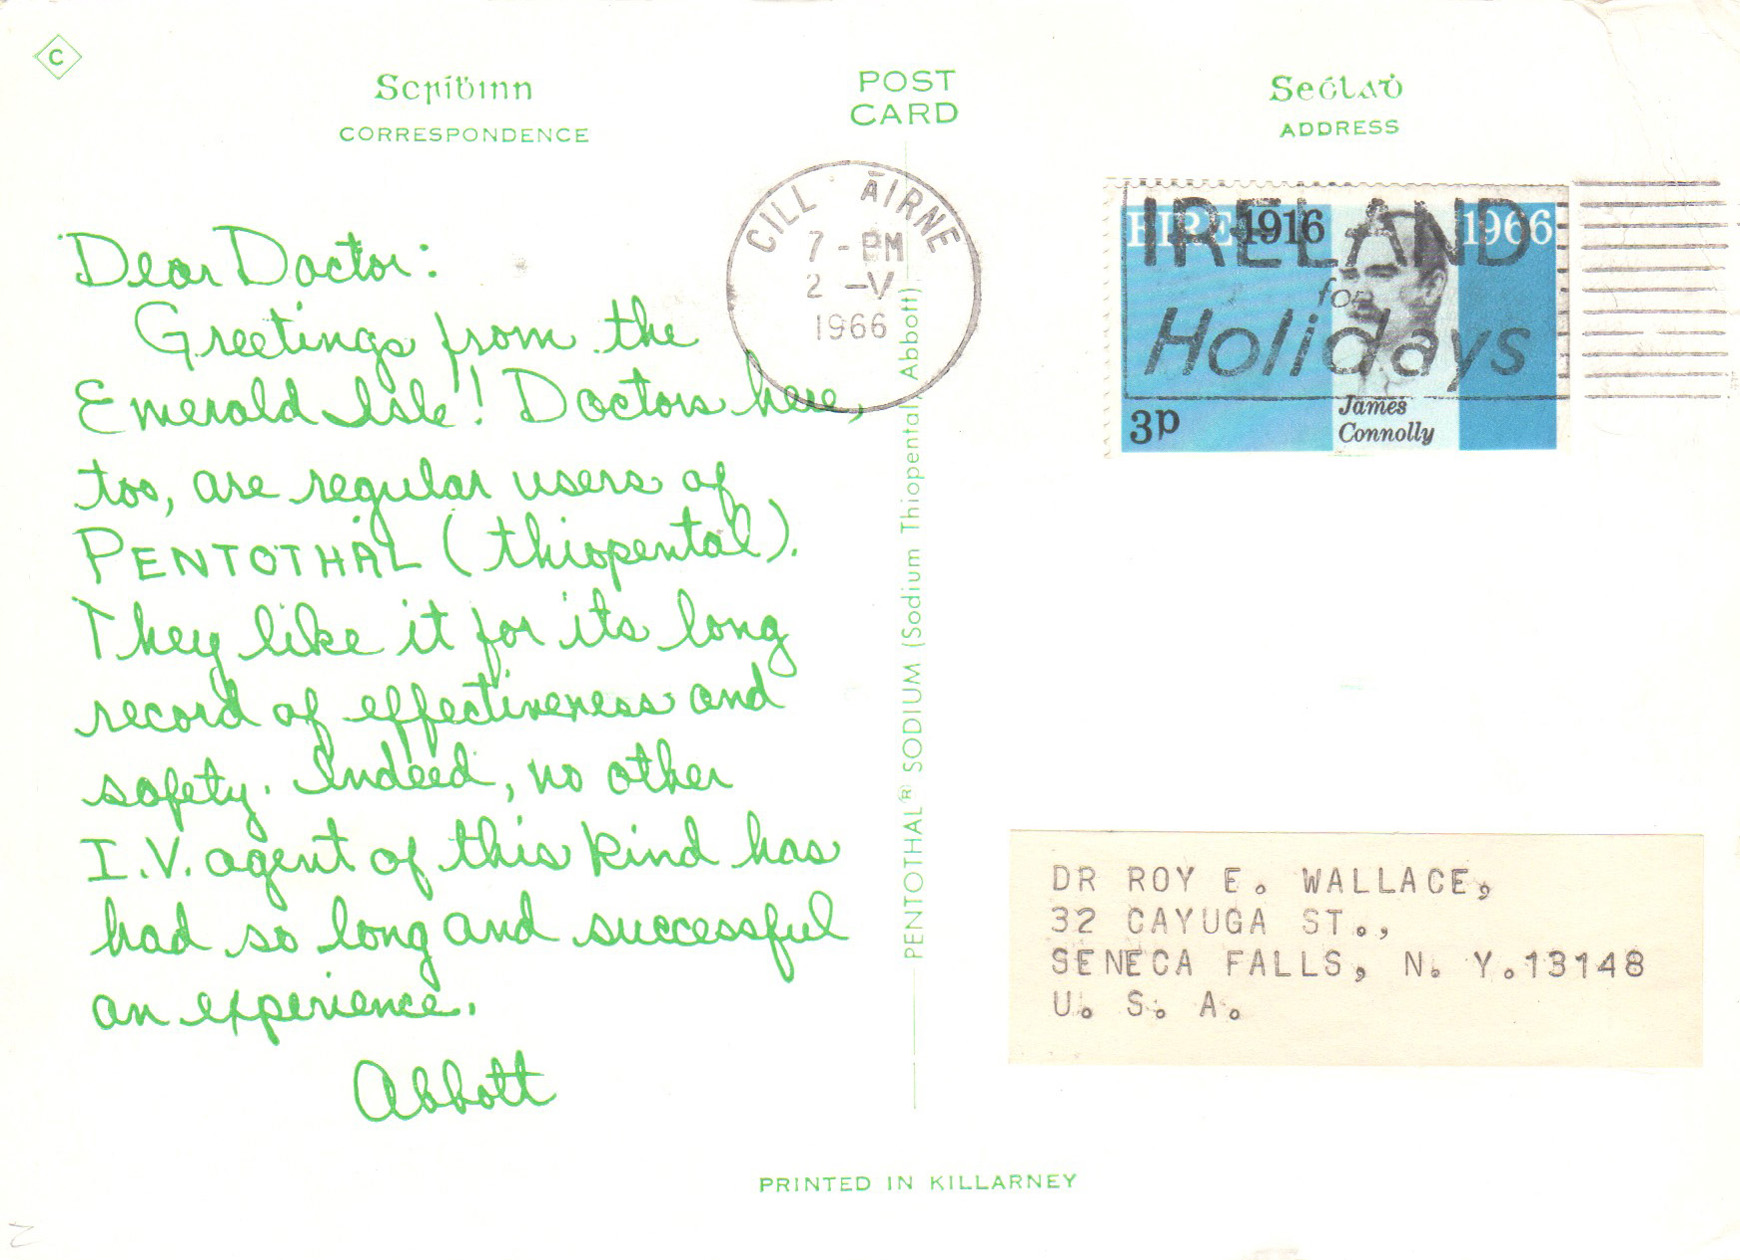 C
Scríḃinn
CORRESPONDENCE
POST
CARD
Seólaḋ
ADDRESS
CILL AIRNE
7 - PM
2 - V
1966
EIRE 1916 1966
3p
James
Connolly
IRELAND
for
Holidays
Dear Doctor:
Greetings from the
Emerald Isle! Doctors here,
too, are regular users of
PENTOTHAL (thiopental).
They like it for its long
record of effectiveness and
safety. Indeed, no other
I.V. agent of this kind has
had so long and successful
an experience.
Abbott
PENTOTHAL® SODIUM (Sodium Thiopental, Abbott)
DR ROY E. WALLACE,
32 CAYUGA ST.,
SENECA FALLS, N. Y.13148
U. S. A.
PRINTED IN KILLARNEY